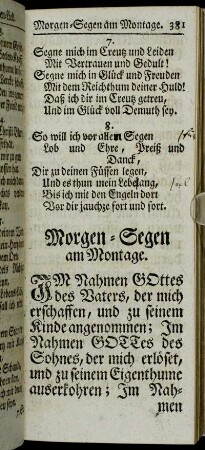 Morgen-Segen am Montage. 381
7.
Segne mich im Creutz und Leiden
Mit Vertrauen und Gedult!
Segne mich in Glück und Freuden
Mit dem Reichthum deiner Huld!
Daß ich dir im Creutz getreu,
Und im Glück voll Demuth sey.
8.
So will ich vor allem Segen
Lob und Ehre, Preiß und
Danck,
Dir zu deinen Füssen legen,
Und es thun mein Lebelang,
Bis ich mit den Engeln dort
Vor dir jauchze fort und fort.
Morgen-Segen
am Montage.
IM Nahmen GOttes
des Vaters, der mich
erschaffen, und zu seinem
Kinde angenommen; Im
Nahmen GOTTes des
Sohnes, der mich erlöset,
und zu seinem Eigenthume
auserkohren; Im Nah-
men